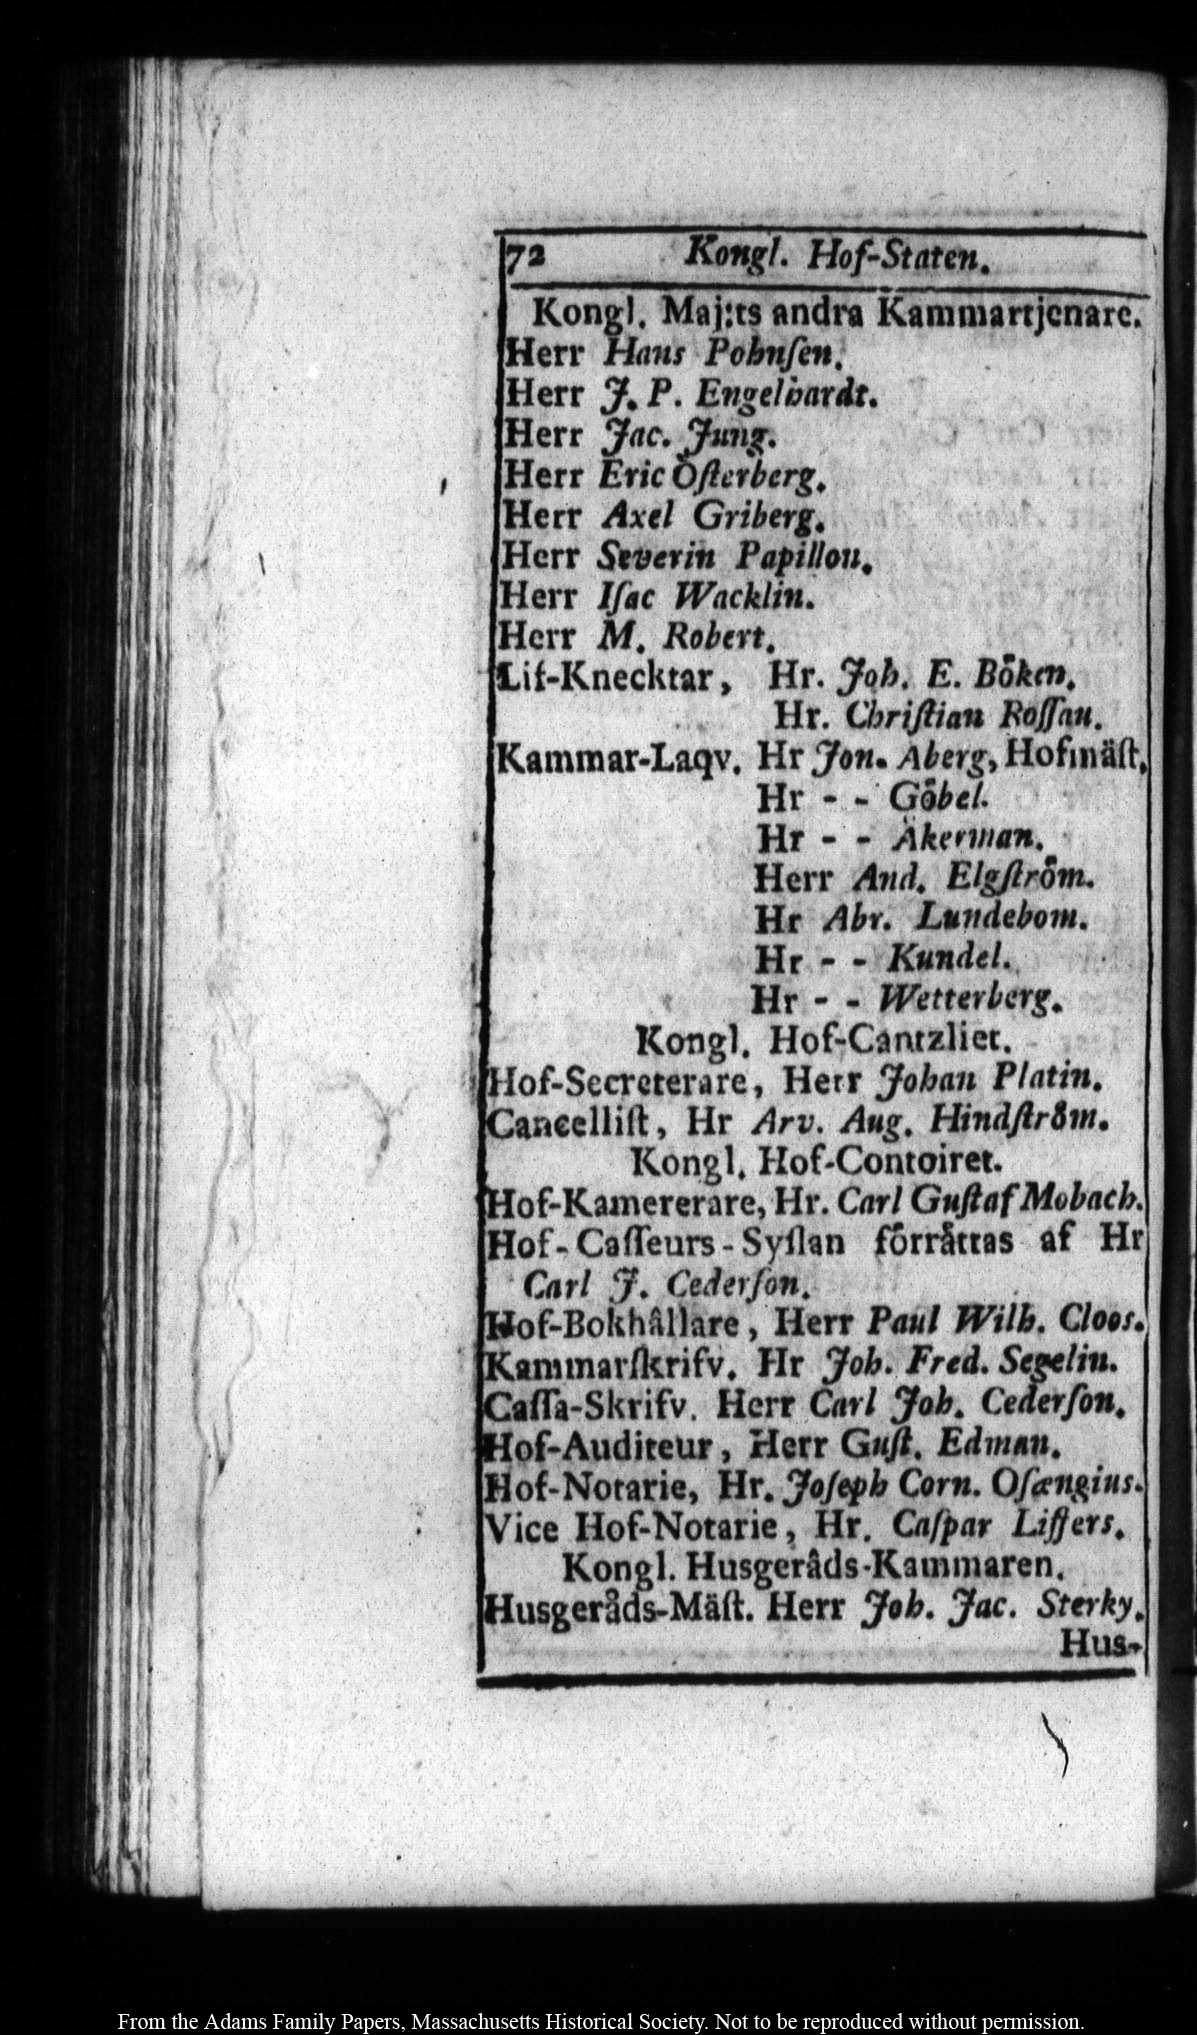 72 Kongl. Hof-Staten.
Kongl. Maj:ts andra Kammartjenare.
Herr Hans Pohnſen.
Herr J. P. Engelhardt.
Herr Jac. Jung.
Herr Eric Öſterberg.
Herr Axel Griberg.
Herr Severin Papillon.
Herr Iſac Wacklin.
Herr M. Robert.
Lif-Knecktar, Hr. Joh. E. Böken.
Hr. Chriſtian Roſſau.
Kammar-Laqv. Hr Jon. Aberg, Hofmäſt.
Hr - - Göbel.
Hr - - Åkerman.
Herr And. Elgſtröm.
Hr Abr. Lundebom.
Hr - - Kundel.
Hr - - Wetterberg.
Kongl. Hof-Cantzliet.
Hof-Secreterare, Herr Johan Platin.
Cancelliſt, Hr Arv. Aug. Hindſtröm.
Kongl. Hof-Contoiret.
Hof-Kamererare, Hr. Carl Guſtaf Mobach.
Hof-Caſſeurs-Syſlan förråttas af Hr
Carl J. Cederſon.
Hof-Bokhâllare, Herr Paul Wilh. Cloos.
Kammarſkrifv. Hr Joh. Fred. Segelin.
Caſſa-Skrifv. Herr Carl Joh. Cederſon.
Hof-Auditeur, Herr Guſt. Edman.
Hof-Notarie, Hr. Joſeph Corn. Oſængius.
Vice Hof-Notarie, Hr. Caſpar Liſſers.
Kongl. Husgerâds-Kammaren.
Husgeråds-Mäſt. Herr Joh. Jac. Sterky.
Hus-
From the Adams Family Papers, Massachusetts Historical Society. Not to be reproduced without permission.